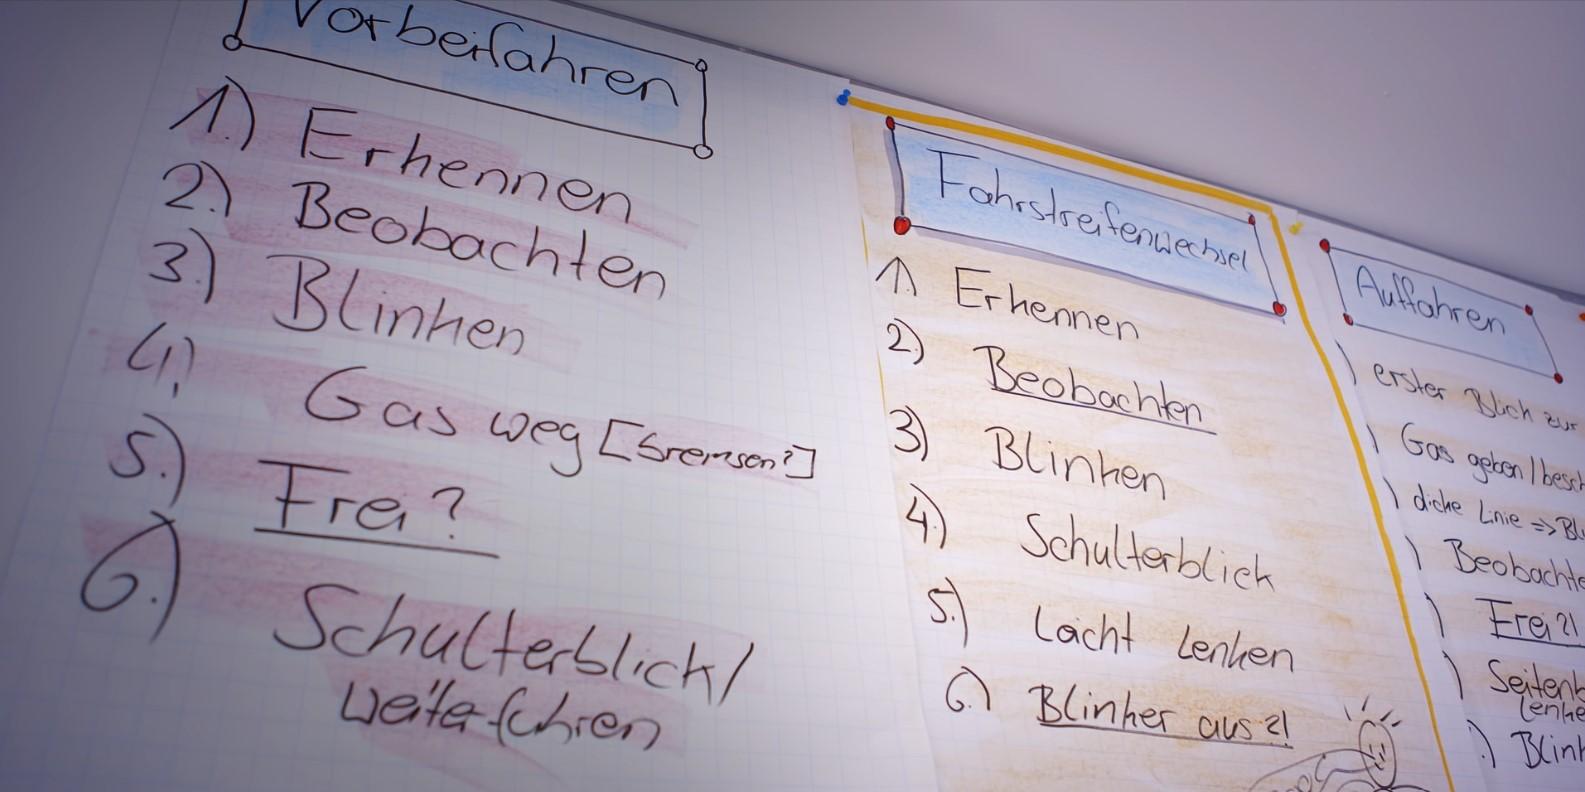 Vorbeifahren
1.) Erkennen
2.) Beobachten
3.) Blinken
4.) Gas weg [bremsen?]
5.) Frei?
6.) Schulterblick/
weiterfahren
Fahrstreifenwechsel
1) Erkennen
2) Beobachten
3) Blinken
4.) Schulterblick
5.) Leicht Lenken
6.) Blinker aus?!
Auffahren
) erster Blick zur
) Gas geben/besch
) dicke Linie => Bli
) Beobachte
) Frei?!
) Seitenb
lenke
.) Blink